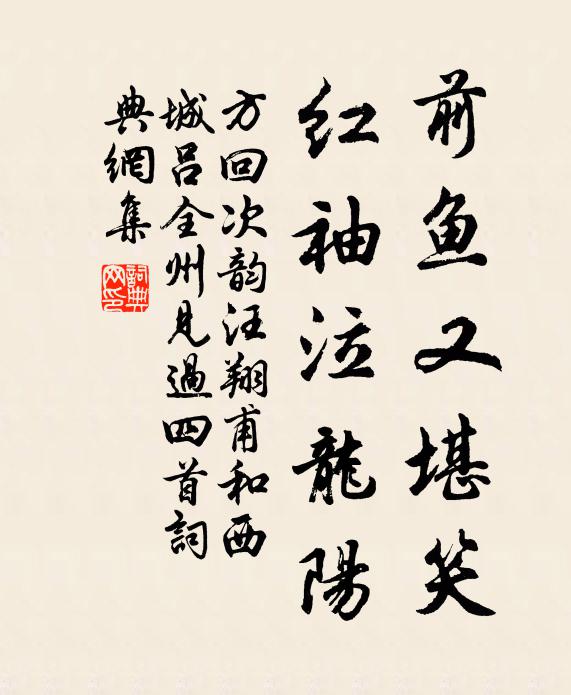 前鱼又堪笑
红袖泣龍陽
方回次韵汪翔甫和西
城吕全州見過四首詞
典網集
詞典
网印